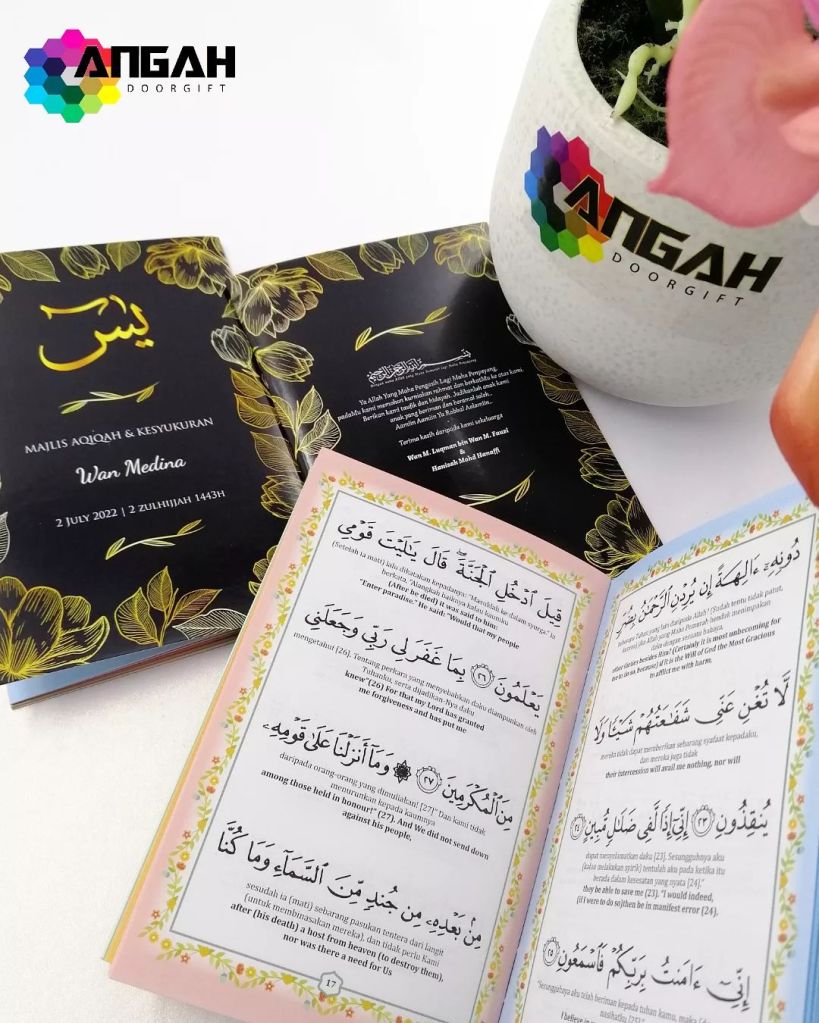 ANGAH
DOORGIFT
ANGAH
DOORGIFT
يس
MAJLIS AQIQAH & KESYUKURAN
Wan Medina
2 JULY 2022 | 2 ZULHIJJAH 1443H
Ya Allah Yang Maha Pengasih Lagi Maha Penyayang,
padaMu kami memohon kurniakan rahmat dan berkatMu ke atas kami.
Berikan kami taufik dan hidayah. Jadikanlah anak kami
anak yang beriman dan beramal soleh.
Aamiin Aamiin Ya Rabbal Aalamin..
Terima kasih daripada kami sekeluarga
Wan M. Luqman bin Wan M. Fauzi
&
Hanisah Mohd Hanaffi
قِيلَ ٱدْخُلِ ٱلْجَنَّةَ ۖ قَالَ يَٰلَيْتَ قَوْمِى
(Setelah ia mati) lalu dikatakan kepadanya: "Masuklah ke dalam syurga." Ia
berkata. "Alangkah baiknya kalau kaumku
(After he died) it was said to him:
"Enter paradise." He said: "Would that my people
يَعْلَمُونَ ٢٦ بِمَا غَفَرَ لِى رَبِّى وَجَعَلَنِى
mengetahui [26]. Tentang perkara yang menyebabkan daku diampunkan oleh
Tuhanku, serta dijadikan-Nya daku
knew"(26) For that my Lord has granted
me forgiveness and has put me
مِنَ ٱلْمُكْرَمِينَ ٢٧ وَمَآ أَنزَلْنَا عَلَىٰ قَوْمِهِۦ
daripada orang-orang yang dimuliakan! [27]" Dan kami tidak
menurunkan kepada kaumnya
among those held in honour!" (27). And We did not send down
against his people,
مِنۢ بَعْدِهِۦ مِن جُندٍ مِّنَ ٱلسَّمَآءِ وَمَا كُنَّا
sesudah ia (mati) sebarang pasukan tentera dari langit
(untuk membinasakan mereka), dan tidak perlu Kami
after (his death) a host from heaven (to destroy them),
nor was there a need for Us
17
دُونِهِۦٓ ءَالِهَةً إِن يُرِدْنِ ٱلرَّحْمَٰنُ بِضُرٍّ
beberapa Tuhan yang lain daripada Allah? (Sudah tentu tidak patut,
kerana) jika Allah yang Maha Pemurah hendak menimpakan
daku dengan sesuatu bahaya,
other deities besides Him? (Certainly it is most unbecoming for
me to do so, because) if it is the Will of God the Most Gracious
to afflict me with harm,
لَّا تُغْنِ عَنِّى شَفَٰعَتُهُمْ شَيْـًٔا وَلَا
mereka tidak dapat memberikan sebarang syafaat kepadaku,
dan mereka juga tidak
their intercession will avail me nothing, nor will
يُنقِذُونِ ٢٣ إِنِّىٓ إِذًا لَّفِى ضَلَٰلٍ مُّبِينٍ ٢٤
dapat menyelamatkan daku [23]. Sesungguhnya aku
(kalau melakukan syirik) tentulah aku pada ketika itu
berada dalam kesesatan yang nyata [24]."
they be able to save me (23). "I would indeed,
(if I were to do so)then be in manifest error (24).
إِنِّىٓ ءَامَنتُ بِرَبِّكُمْ فَٱسْمَعُونِ ٢٥
"Sesungguhnya aku telah beriman kepada tuhan kamu, maka
nasihatku